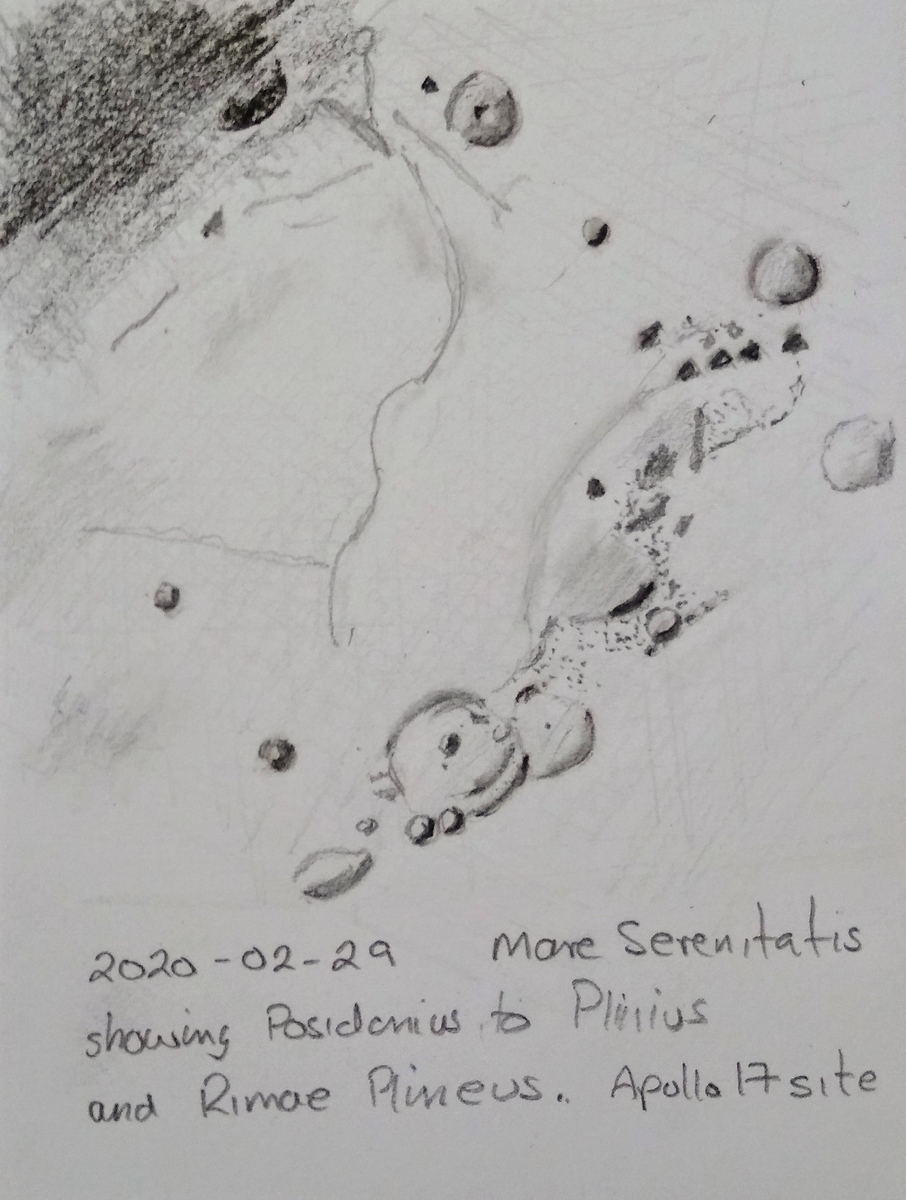 2020-02-29 Mare Serenitatis
showing Posidonius to Plinius
and Rimae Plineus. Apollo 17 site